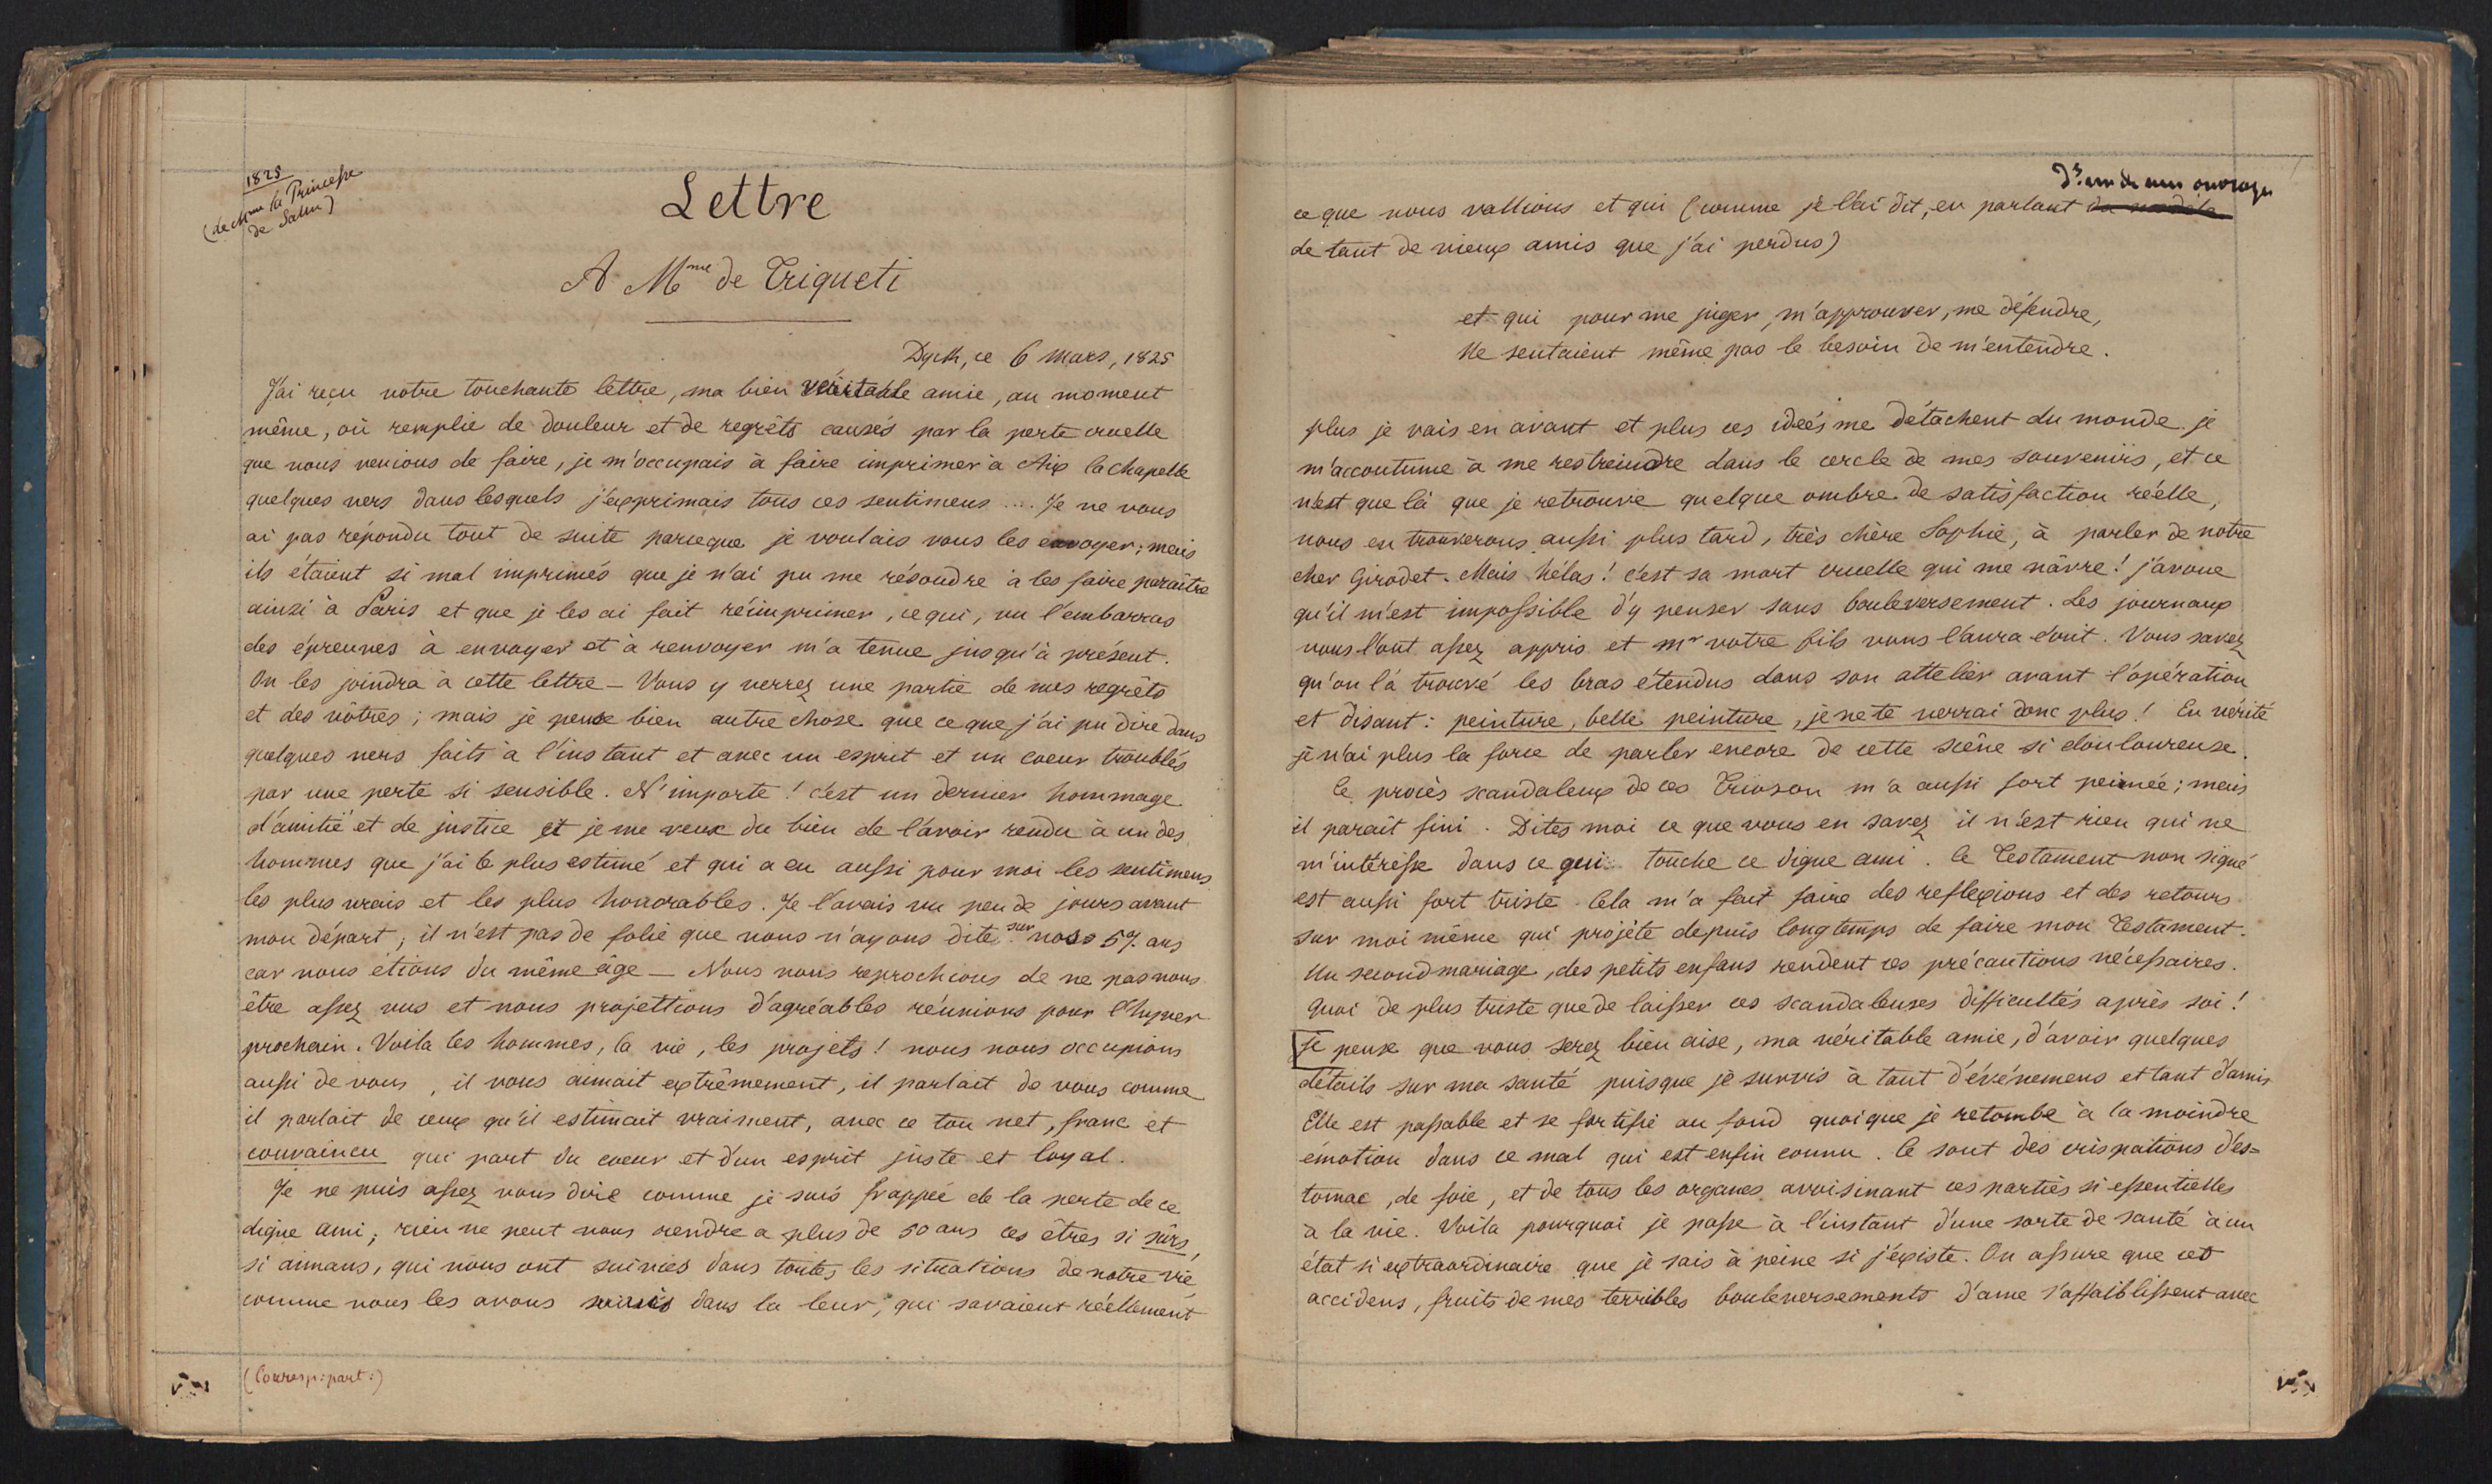 1825
(de Mme la Princesse
de Salm)
Lettre
A Mme de Triqueti
Dyck, ce 6 mars, 1825
J'ai reçu votre touchante lettre, ma bien véritable amie, au moment
même, où remplie de douleur et de regrêts causés par la perte cruelle
que nous venions de faire, je m'occupais à faire imprimer à Aix la chapelle
quelques vers dans lesquels j'exprimais tous ces sentimens .... Je ne vous
ai pas répondu tout de suite parceque je voulais vous les envoyer; mais
ils étaient si mal imprimés que je n'ai pu me résoudre à les faire paraître
ainsi à Paris et que je les ai fait réimprimer, ce qui, vu l'embarras
des épreuves à envoyer et à renvoyer m'a tenue jusqu'à présent.
On les joindra à cette lettre - Vous y verrez une partie de mes regrêts
et des vôtres; mais je pense bien autre chose que ce que j'ai pu dire dans
quelques vers faits à l'instant et avec un esprit et un coeur troublés
par une perte si sensible. N'importe! c'est un dernier hommage
d'amitié et de justice et je me veux du bien de l'avoir rendu à un des
hommes que j'ai le plus estimé et qui a eu aussi pour moi les sentimens
les plus vrais et les plus honorables. Je l'avais vu peu de jours avant
mon départ; il n'est pas de folie que nous n'ayons dites sur nos 57 ans
car nous étions du même âge - Nous nous reprochions de ne pas nous
être assez vus et nous projettions d'agréables réunions pour l'hyver
prochain. Voila les hommes, la vie, les projets! nous nous occupions
aussi de vous, il vous aimait extrêmement, il parlait de vous comme
il parlait de ceux qu'il estimait vraiment, avec ce ton net, franc et
convaincu qui part du coeur et d'un esprit juste et loyal.
Je ne puis assez vous dire comme je suis frappée de la perte de ce
digne ami; rien ne peut nous rendre a plus de 50 ans ces êtres si sûrs,
si aimans, qui nous ont suivies dans toutes les situations de notre vie
comme nous les avons suivis dans la leur, qui savaient réellement
(Corresp: part:)
ds un de mes ouvrages
ce que nous vallions et qui (comme je l'ai dit, en parlant
de tant de vieux amis que j'ai perdus)
et qui pour me juger, m'approuver, me défendre,
Ne sentaient même pas le besoin de m'entendre.
plus je vais en avant et plus ces ideés me détachent du monde. je
m'accoutume à me restreindre dans le cercle de mes souvenirs, et ce
n'est que là que je retrouve quelque ombre de satisfaction réelle,
nous en trouverons aussi plus tard, très chère Sophie, à parler de notre
cher Girodet. Mais hélas! c'est sa mort cruelle qui me nâvre! j'avoue
qu'il m'est impossible d'y penser sans bouleversement. Les journaux
vous l'ont assez appris et mr votre fils vous l'aura écrit. Vous savez
qu'on l'a trouvé les bras étendus dans son attelier avant l'opération
et disant: peinture, belle peinture, je ne te verrai donc plus! En vérité
je n'ai plus la force de parler encore de cette scène si douloureuse.
Ce procès scandaleux de ces Trioson m'a aussi fort peinée; mais
il parait fini. Dites moi ce que vous en savez il n'est rien qui ne
m'intéresse dans ce qui touche ce digne ami. Ce Testament non signé
est aussi fort triste. Cela m'a fait faire des reflexions et des retours
sur moi même qui projète depuis longtemps de faire mon Testament.
Un second mariage, des petits enfans rendent ces précautions nécessaires.
Quoi de plus triste que de laisser ces scandaleuses difficultés après soi!
Je pense que vous serez bien aise, ma véritable amie, d'avoir quelques
détails sur ma santé puisque je survis à tant d'événemens et tant d'amis
Elle est passable et se fortifie au fond quoique je retombe à la moindre
émotion dans ce mal qui est enfin connu. Ce sont des crispations d'es=
tomac, de foie, et de tous les organes avoisinant ces parties si essentielles
à la vie. Voila pourquoi je passe à l'instant d'une sorte de santé à un
état si extraordinaire que je sais à peine si j'existe. On assure que ces
accidens, fruits de mes terribles bouleversements d'ame s'affaiblissent avec